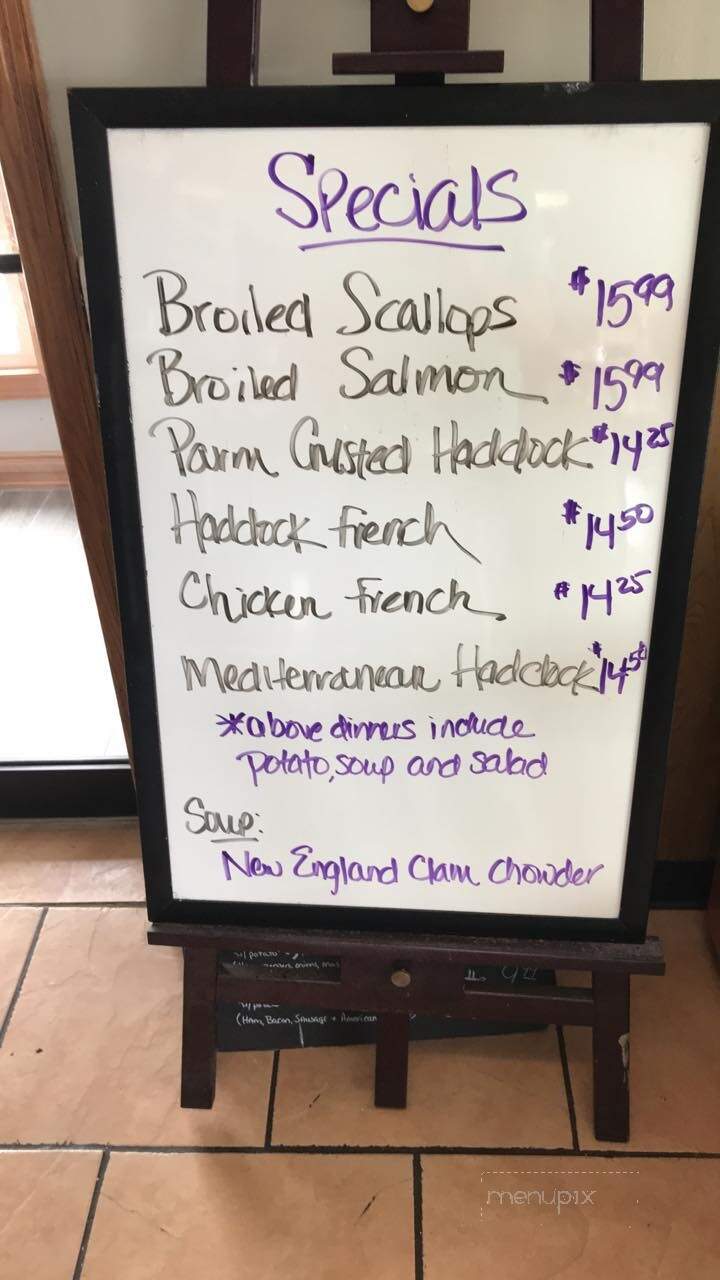 Specials
Broiled Scallops $15.99
Broiled Salmon $15.99
Parm Crusted Haddock $14.25
Haddock French $14.50
Chicken French $14.25
Mediterranean Haddock $14.50
*above dinners include
potato, soup and salad
Soup:
New England Clam Chowder
w/ potato
(Ham, Bacon, Sausage + American
menupix